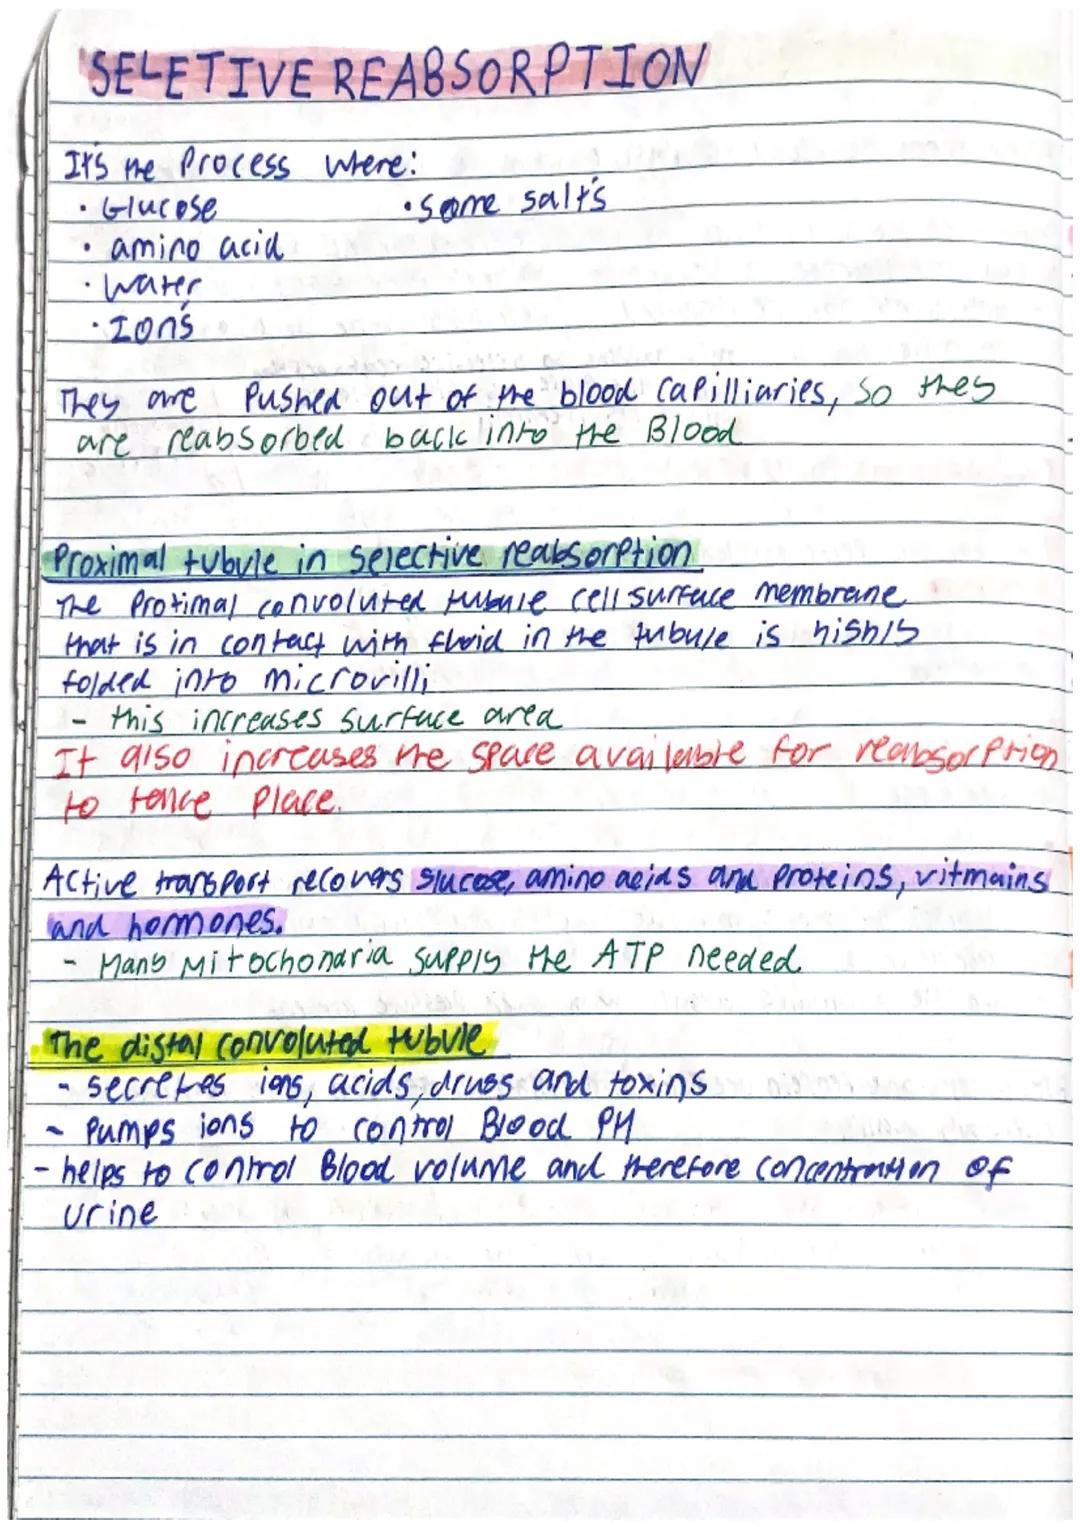 SELETIVE REABSORPTION
It's the Process where:
• Glucose •some salt's
• amino acid
• Water
• Ion's
They are Pushed out of the blood capilliaries, so they
are reabsorbed back into the Blood
Proximal tubule in selective reabsorption
The Protimal convoluted tubule cell surface membrane
that is in contact with fluid in the tubule is highly
folded into microvilli
- this increases surface area
It also increases the space available for reabsorption
to take place.
Active transport recovers glucose, amino acids and proteins, vitmains
and hormones.
- Many Mitochondria supply the ATP needed
The distal convoluted tubule
- secretes ions, acids, drugs and toxins
- Pumps ions to control Blood PH
- helps to control Blood volume and therefore concentration of
urine